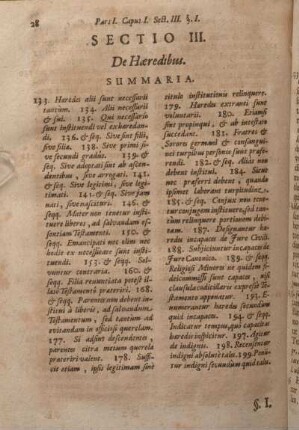 28 Pars I. Caput I. Sect. III. §. I.
SECTIO III.
De Hæredibus.
SUMMARIA.
133. Hæredes alii sunt necessarii
tantum. 134. Alii necessarii
& sui. 135. Qui necessario
sunt instituendi vel exhæredan-
di. 136. & seq. Sive sint filii,
sive filia. 138. Sive primi si-
ve secundi gradus. 139. &
seq. Sive adoptati sint ab ascen-
dentibus, sive arrogati. 141.
& seq. Sive legitimi, sive legi-
timati. 141. & seq. Sive jam
nati, sive nascituri. 146. &
seq. Mater non tenetur insti-
tuere liberos, ad salvandum es-
sentiam Testamenti. 150. &
seq. Emancipati nec olim nec
hodie ex necessitate sunt insti-
tuendi. 153. & seqq. Sol-
vuntur contraria. 160. &
seq. Filia renuntiata potest il-
lius Testamento præteriri. 168.
& seqq. Parentes non debent in-
stitui à liberis, ad salvandum,
Testamentum, sed tantum ad
evitandam in officiosi querelam.
177. Si adsint descendentes,
parentes citra metum querela
præteriri valent. 178. Suffi-
cit etiam, ipsis legitimam sine
titulo institutionis relinquere.
179. Hæredes extranei sunt
voluntarii. 180. Etiamsi
sint propinqui, & ab intestato
succedant. 181. Fratres &
Sorores germani & consangui-
nei turpibus personis sunt præfe-
rendi. 182. & seq. Alias non
debent institui. 184. Sicut
nec præferri debent, quando
ipsimet laborant turpitudine.
185. & seq. Conjux non tene-
tur conjugem instituere, sed tan-
tum relinquere portionem debi-
tam. 187. Designantur hæ-
redes incapaces de Jure Civili.
188. Subjiciuntur incapaces de
Jure Canonico. 189. & seqq.
Religiosi Minores in quidem si
dolcommissis sunt capaces, nisi
clausula codicillaris expressè Te-
stamento apponatur. 193. E-
numerantur hæredes secundum
quid incapaces. 194. & seqq.
Indicatur tempus, quo capacitas
hæredis inspicitur. 197. Agitur
de indignis. 198. Recensentur
indigni absolutè tales. 199. Ponun-
tur indigni secundum quid tales.
§. I.